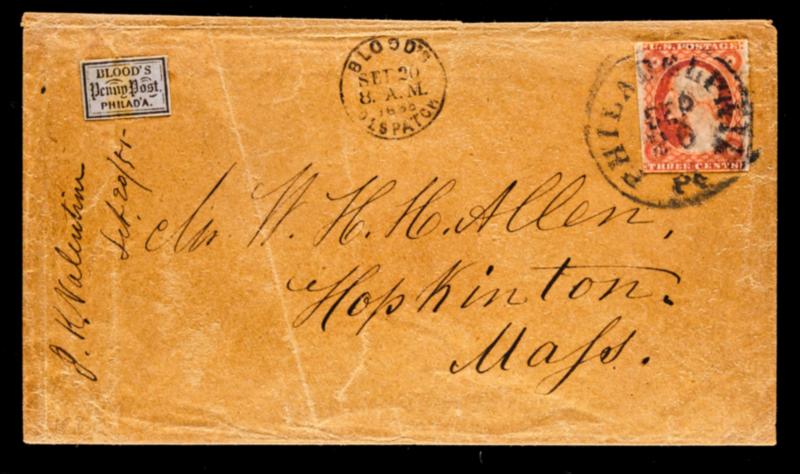 BLOOD'S
Penny Post.
PHILAD'A.
BLOOD'S
SEP 20
8. A.M.
DISPATCH
U.S. POSTAGE
THREE CENTS
PHILADELPHIA
SEP
20
Pa
Mr. W. H. H. Allen,
Hopkinton.
Mass.
J. K. Valentine
Sept 20/55-